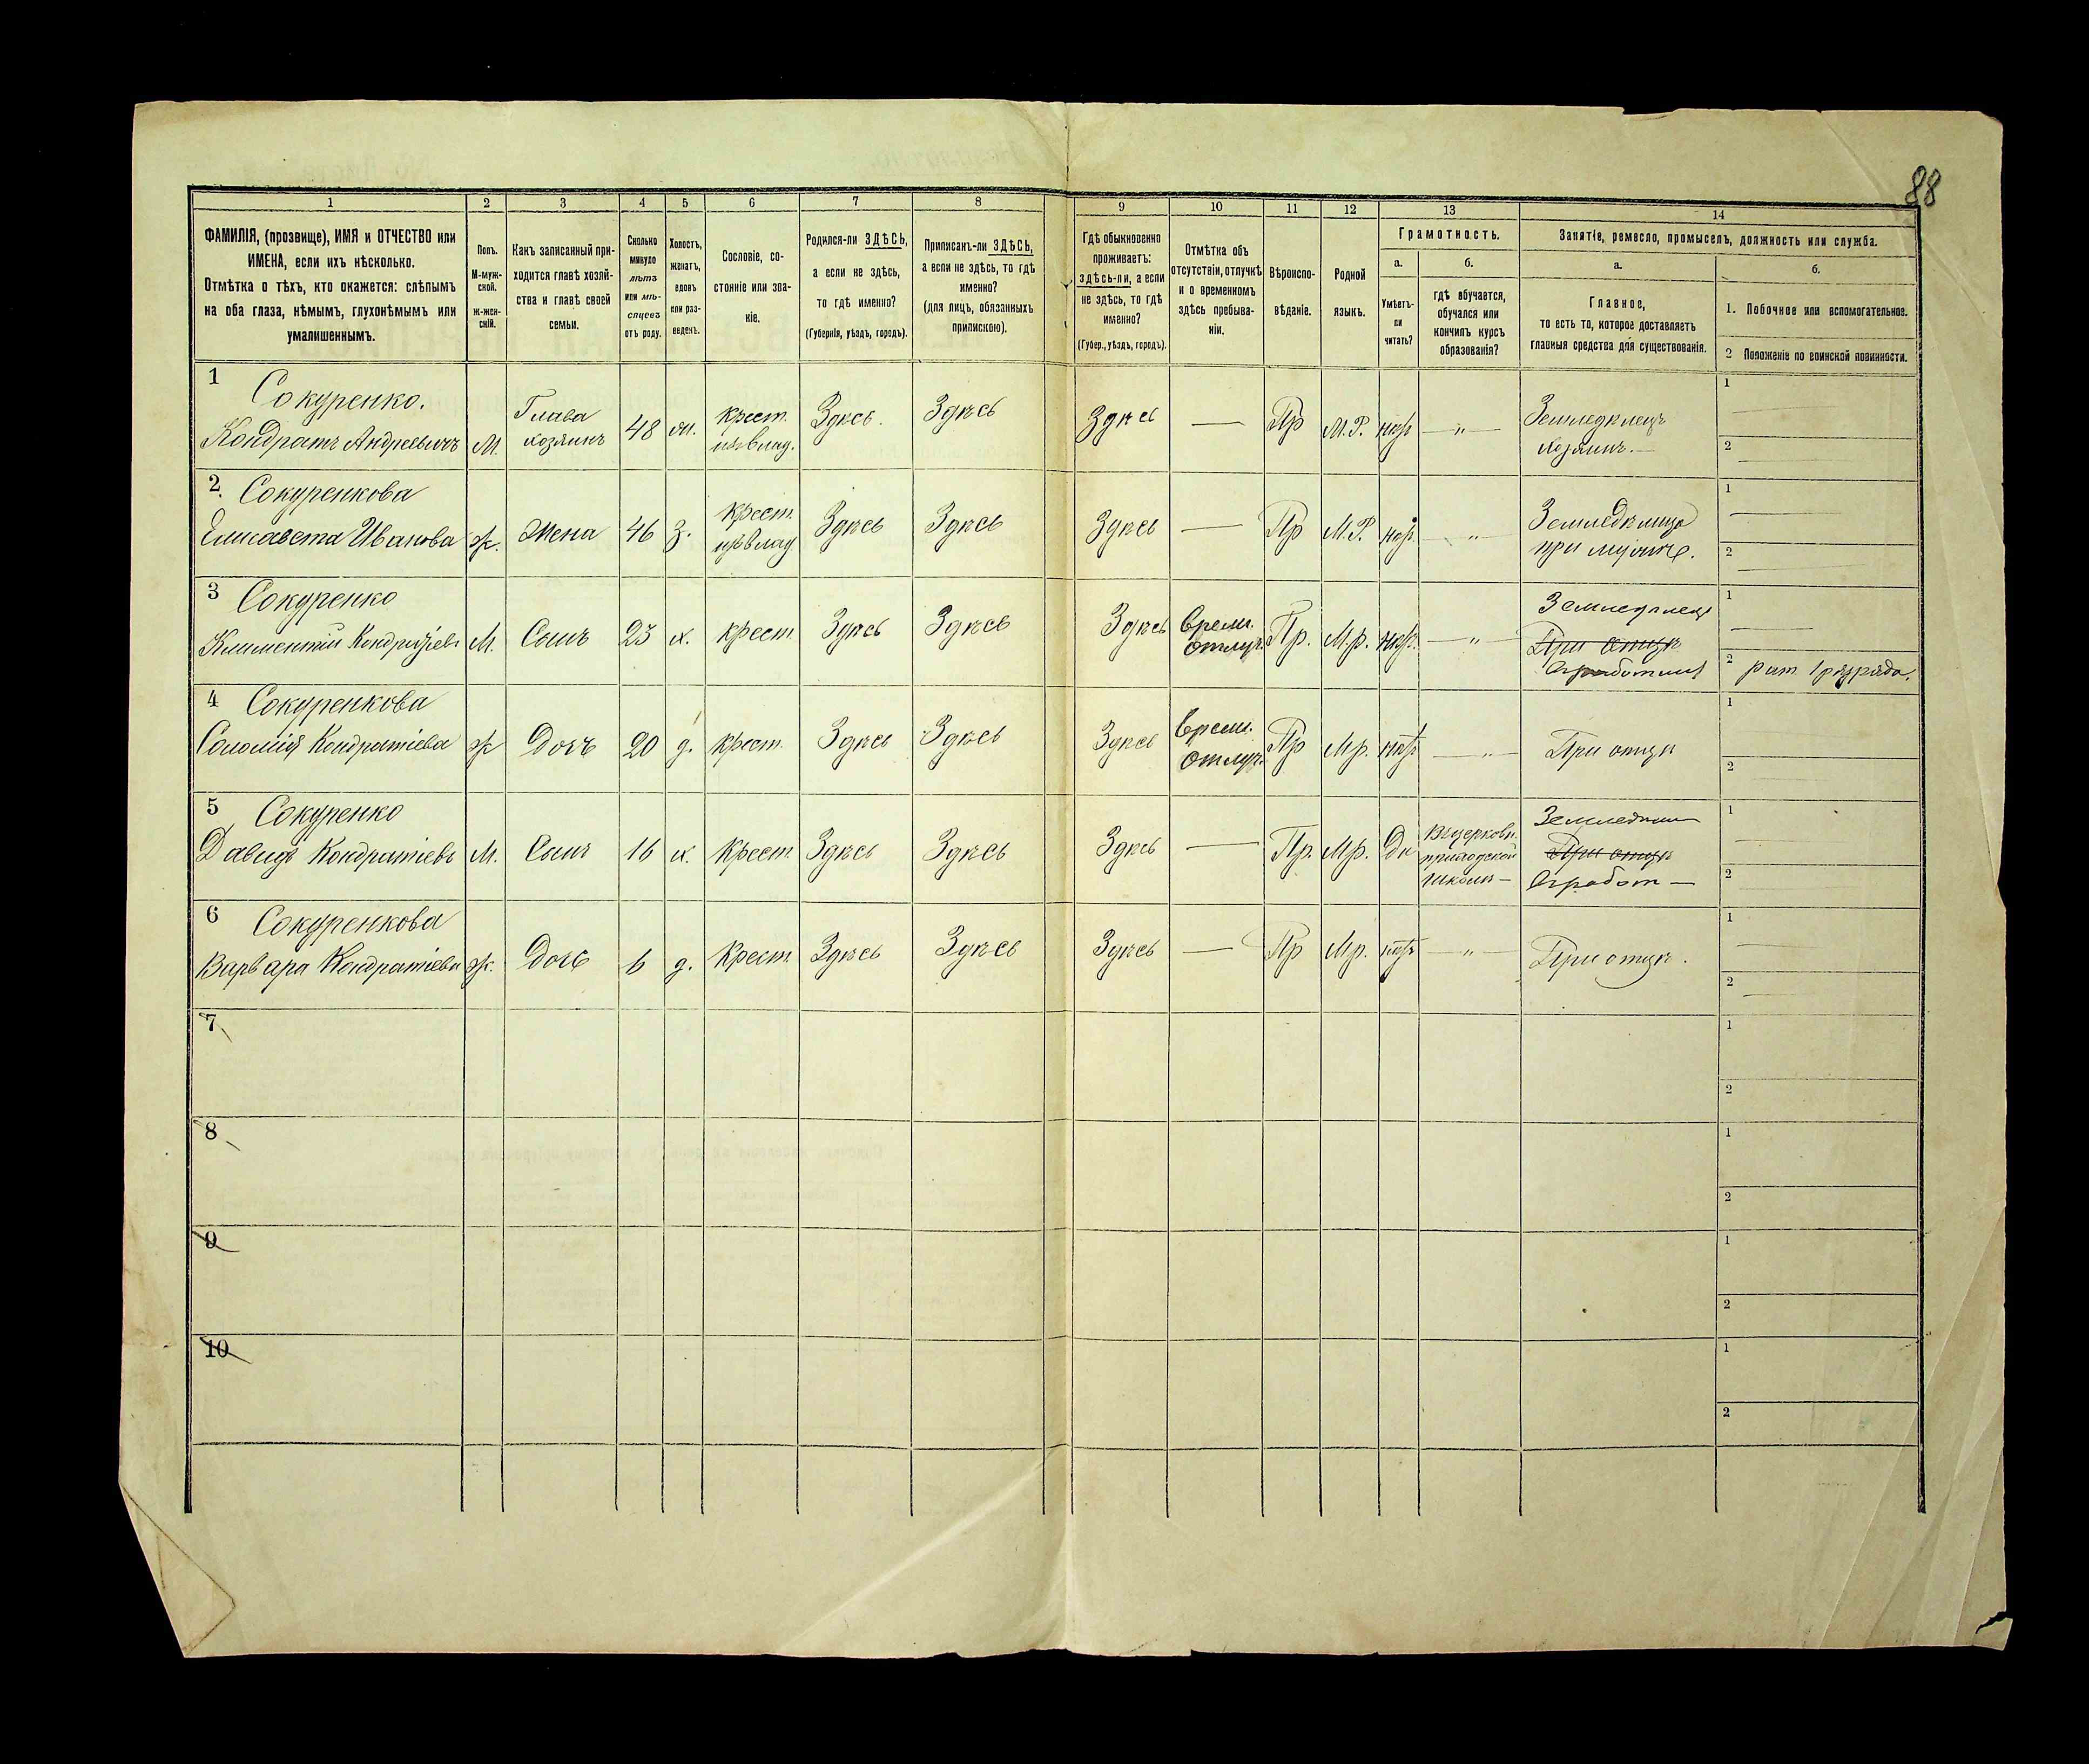 88
1 2 3 4 5 6 7 8 9 10 11 12 13 14
ФАМИЛІЯ, (прозвище), ИМЯ и ОТЧЕСТВО или
ИМЕНА, если ихъ нѣсколько.
Отмѣтка о тѣхъ, кто окажется: слѣпымъ
на оба глаза, нѣмымъ, глухонѣмымъ или
умалишеннымъ.
Полъ.
М-муж-
ской.
Ж-жен-
скій.
Какъ записанный при-
ходится главѣ хозяй-
ства и главѣ своей
семьи.
Сколько
минуло
лѣтъ
или мѣ-
сяцевъ
отъ роду.
Холостъ,
женатъ,
вдовъ
или раз-
веденъ.
Сословіе, со-
стояніе или зва-
ніе.
Родился-ли ЗДѢСЬ,
а если не здѣсь,
то гдѣ именно?
(Губернія, уѣздъ, городъ).
Приписанъ-ли ЗДѢСЬ,
а если не здѣсь, то гдѣ
именно?
(для лицъ, обязанныхъ
припискою).
Гдѣ обыкновенно
проживаетъ:
здѣсь-ли, а если
не здѣсь, то гдѣ
именно?
(Губер., уѣздъ, городъ).
Отмѣтка объ
отсутствіи, отлучкѣ
и о временномъ
здѣсь пребыва-
ніи.
Вѣроиспо-
вѣданіе.
Родной
языкъ.
Грамотность.
а.
Умѣетъ-
ли
читать?
б.
гдѣ обучается,
обучался или
кончилъ курсъ
образованія?
Занятіе, ремесло, промыселъ, должность или служба.
а.
Главное,
то есть то, которое доставляетъ
главныя средства для существованія.
б.
1. Побочное или вспомогательное.
2 Положеніе по воинской повинности.
1 Сокуренко.
Кондратъ Андреевичъ
М.
Глава
хозяинъ
48
крест.
Здѣсь.
Здѣсь
Здѣсь
—
Пр
М.Р.
— „ —
Земледѣлецъ
Хозяинъ. —
1
2
2. Сокуренкова
Елисавета Иванова
ж.
Жена
46
з.
крест.
Здѣсь
Здѣсь
Здѣсь
—
Пр
М.Р.
— „ —
при мужѣ.
1
2
3 Сокуренко
М.
Сынъ
23
х.
крест
Здѣсь
Здѣсь
Здѣсь
Врем.
отлуч.
Пр.
М.р.
— „ —
Земледѣлец
При отцѣ
1
2 рат. 1 разряда.
4 Сокуренкова
Соломія Кондратіева
ж
Дочъ
20
д.
крест.
Здѣсь
Здѣсь
Здѣсь
Врем.
отлуч.
Пр
Мр.
— „ —
При отцѣ
1
2
5 Сокуренко
Давидъ Кондратіевъ
М.
Сынъ
16
х.
Крест.
Здѣсь
Здѣсь
Здѣсь
—
Пр.
Мр.
Да
Въ церковн.
приходской
школѣ —
При отцѣ
1
2
6 Сокуренкова
Варвара Кондратіева
ж.
Дочь
6
д.
Крест.
Здѣсь
Здѣсь
Здѣсь
—
Пр
Мр.
— „ —
При отцѣ.
1
2
7
1
2
8
1
2
9
1
2
10
1
2